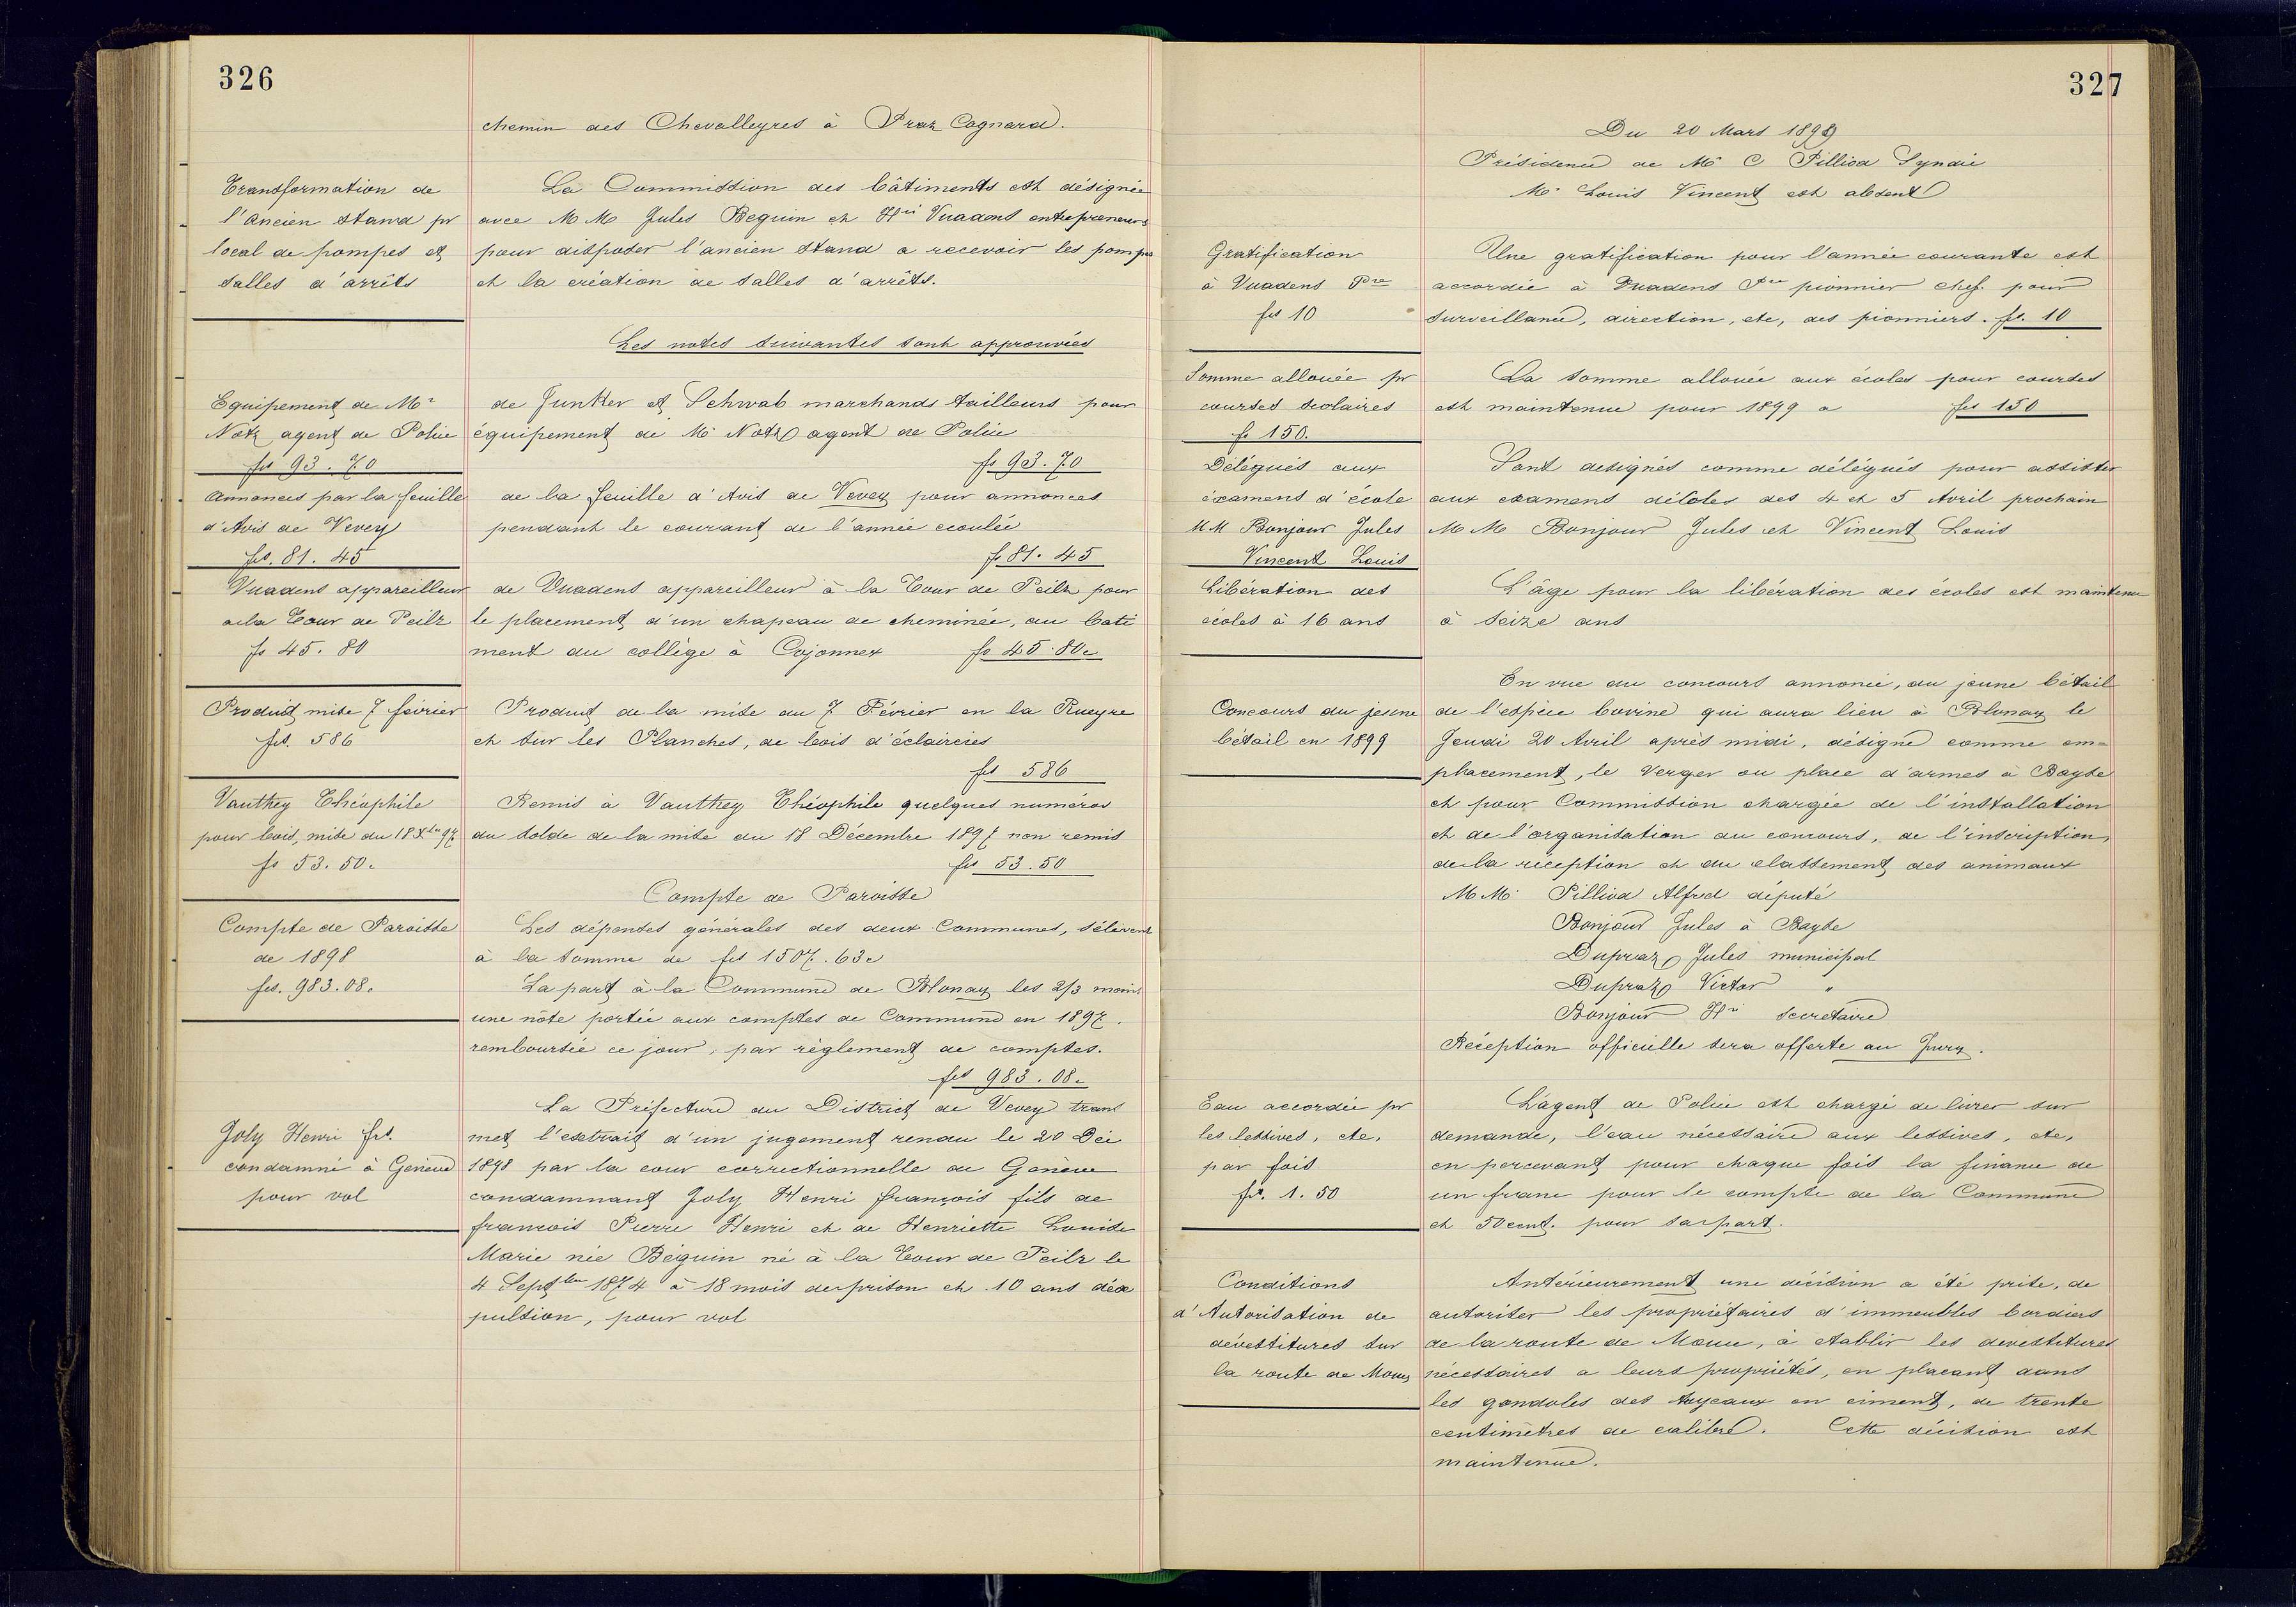 326
chemin des Chevalleyres à Praz Cagnard.
Transformation de
l'ancien stand pr
local de pompes et
salles d'arrêts
La Commission des bâtiments est désignée
avec MM Jules Beguin et Hri Vuadens entrepreneurs
pour disposer l'ancien stand a recevoir les pompes
et la création de salles d'arrêts.
Les notes suivantes sont approuvées
Equipement de Mr
Notz agent de Police
frs 93.70
de Junker et Schwab marchands tailleurs pour
équipement de Mr Notz agent de Police
fs 93.70
Annonces par la feuille
d'Avis de Vevey
frs. 81.45
de la feuille d'Avis de Vevey pour annonces
pendant le courant de l'année ecoulée
fs 81.45
Vuadens appareilleur
à la Tour de Peilz
fs 45.80
de Vuadens appareilleur à la Tour de Peilz pour
le placement d'un chapeau de cheminée, au bati
ment du collège à Cojonnex fs 45.80c
Produit mise 7 février
frs. 586
Produit de la mise du 7 Février en la Rueyre
et sur les Planches, de bois d'éclaircies
frs 586
Vauthey Théophile
pour bois, mise du 18 Xbre 97
fs 53.50c
Remis à Vauthey Théophile quelques numéros
du solde de la mise du 18 Décembre 1897 non remis
frs 53.50
Compte de Paroisse
Compte de Paroisse
de 1898
frs. 983.08c
Les dépenses générales des deux Communes, s'élèvent
à la somme de frs 1507.63c
La part à la Commune de Blonay les 2/3 moins
une nôte portée aux comptes de Commune en 1897.
remboursée ce jour, par règlement de comptes.
frs 983.08c
Joly Henri frs.
condamné à Genève
pour vol
La Préfecture du District de Vevey trans
met l'extrait d'un jugement rendu le 20 Déc
1898 par la cour correctionnelle de Genève
condamnant Joly Henri françois fils de
francois Pierre Henri et de Henriette Louise
Marie née Béguin né à la Tour de Peilz le
4 Septbre 1874 à 18 mois de prison et 10 ans d'ex
pulsion, pour vol
327
Du 20 Mars 1899
Présidence de Mr C Pilliod Syndic
Mr Louis Vincent est absent
Gratification
à Vuadens Pre
frs 10
Une gratification pour l'année courante est
accordée à Vuadens Pre pionnier chef. pour
surveillance, direction, etc, des pionniers. fs. 10
Somme allouée pr
courses scolaires
fs 150.
La somme allouée aux écoles pour courses
est maintenue pour 1899 a frs 150
Délégués aux
éxamens d'école
MM Bonjour Jules
Vincent Louis
Sont designés comme délégués pour assister
aux examens décoles des 4 et 5 Avril prochain
MM Bonjour Jules et Vincent Louis
Libération des
écoles à 16 ans
L'âge pour la libération des écoles est maintenu
à seize ans
Concours du jeune
bétail en 1899
En vue du concours annoncé, du jeune bétail
de l'espèce bovine qui aura lieu à Blonay le
Jeudi 20 Avril après midi, désigne comme em=
placement, le Verger ou place d'armes à Bayse
et pour Commission chargée de l'installation
et de l'organisation du concours, de l'inscription,
de la réception et du classement des animaux
MM. Pilliod Alfred député
Bonjour Jules à Bayse
Dupraz Jules municipal
Dupraz Victor "
Bonjour Hri secretaire
Réception officielle sera offerte au Jury.
Eau accordée pr
les lessives, etc,
par fois
fr. 1.50
L'agent de Police est chargé de livrer sur
demande, l'eau nécessaire aux lessives, etc,
en percevant pour chaque fois la finance de
un franc pour le compte de la Commune
et 50 cent. pour sa part.
Conditions
d'Autorisation de
dévestitures sur
la route de Mouy
Antérieurement une décision a été prise, de
autoriser les propriétaires d'immeubles bordiers
de la route de Mouy, à etablir les devestitures
nécessaires a leurs propriétés, en placant dans
les gondoles des tuyeaux en ciment, de trente
centimètres de calibre. Cette décision est
maintenue.